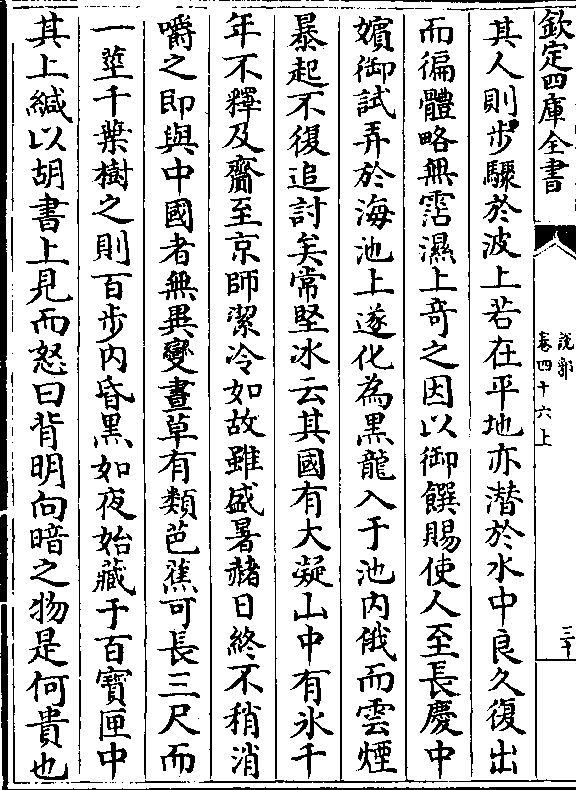 欽定四庫全書
說郛
卷四十六上
三十
其人則步驟於波上若在平地亦潛於水中良久復出
而徧體略無霑濕上竒之因以御饌賜使人至長慶中
嬪御試弄於海池上遂化為黒龍入于池内俄而雲煙
暴起不復追討矣常堅冰云其國有大凝山中有氷千
年不釋及齎至京師潔冷如故雖盛暑赭日終不稍消
嚼之即與中國者無異變晝草有類芭蕉可長三尺而
一莖千葉樹之則百步内昏黒如夜始藏于百寶匣中
其上緘以胡書上見而怒曰背明向暗之物是何貴也